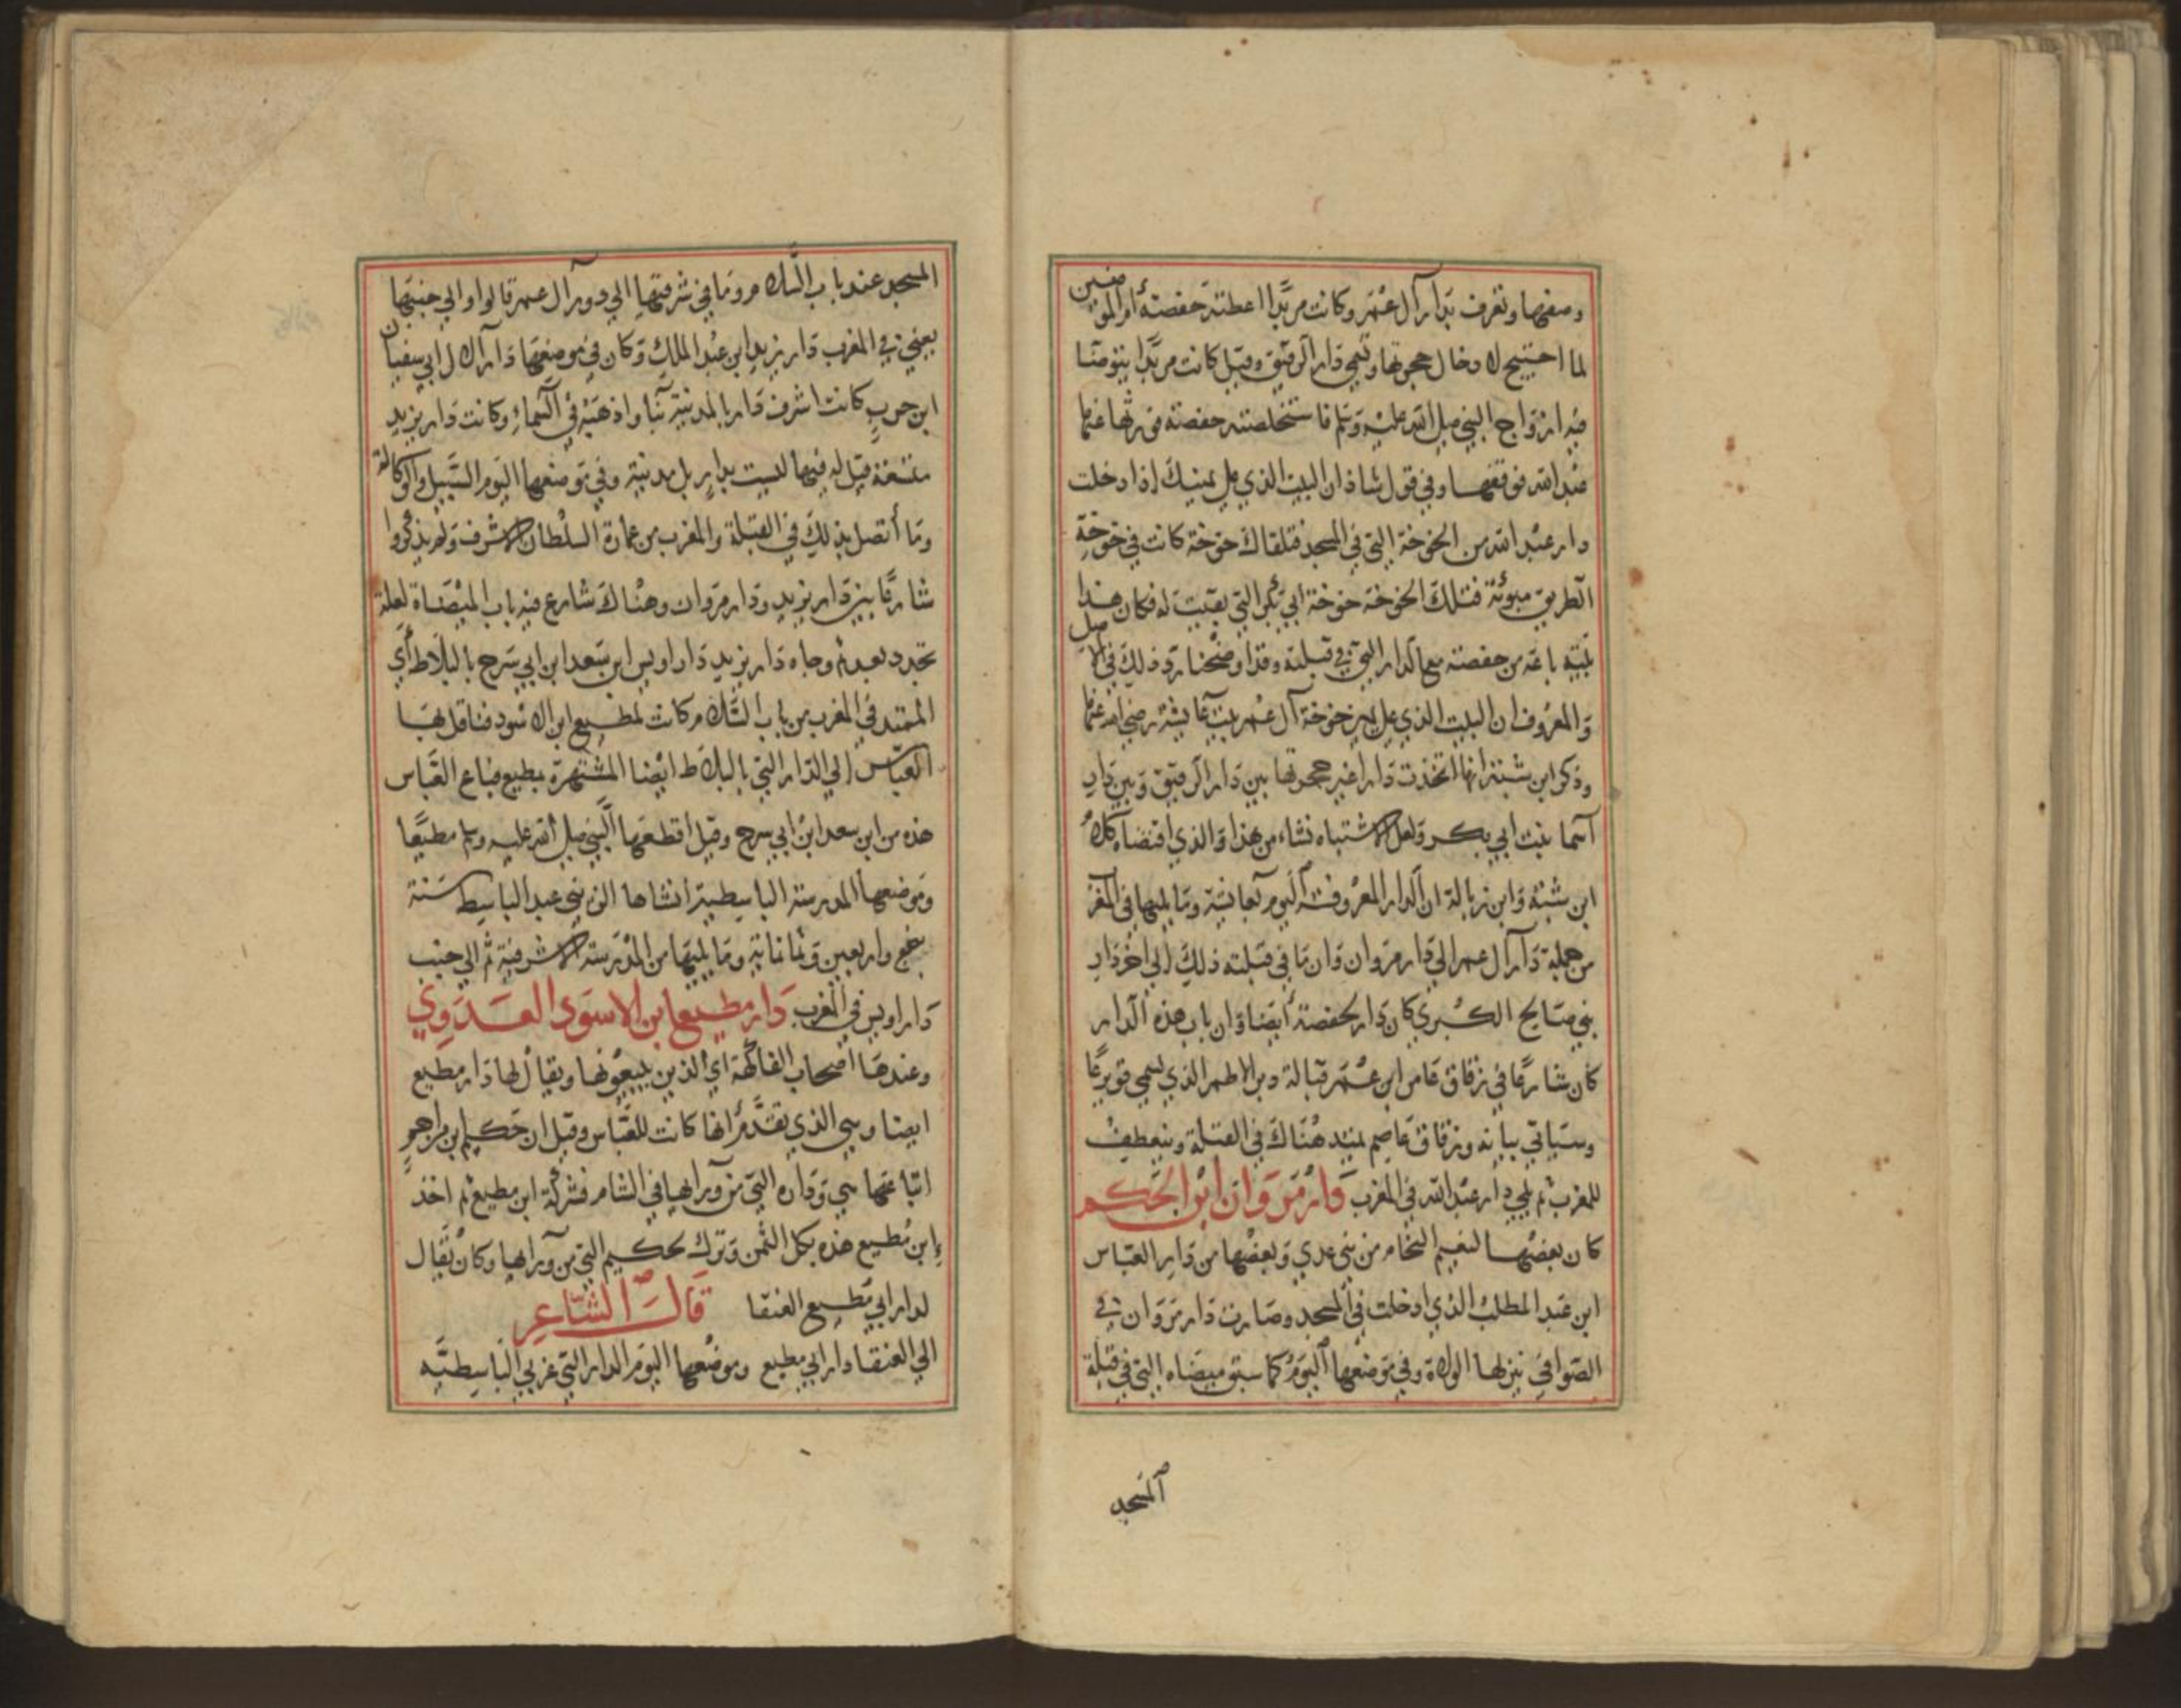 وصفها وتعرف بدار آل عمر وكانت مربدا اعطته حفصة أم المومنين
لما احتيج لادخال حجرتها وتسمي دار الرقيق وقيل كانت مربدا يتوضا
فيه ازواج النبي صلي الله عليه وسلم فاستخلصته حفصة فورثها عنها
عبد الله فوقفها وفي قول شاذ ان البيت الذي علي يمينك اذا دخلت
دار عبد الله من الخوخة التي في المسجد فتلقاك خوخة كانت في خوخة
الطريق مبوبة فتلك الخوخة خوخة ابي بكر التي بقيت له فكان هذا
بيته باعه من حفصة مع الدار التي في قبلته وقد اوضحنا رد ذلك في الاصل
والمعروف ان البيت الذي علي يمين خوخة آل عمر بيت عايشة رضي الله عنها
وذكر ابن شبة انها اتخذت دارا غير حجرتها بين دار الرقيق وبين دار
اسما بنت ابي بكر ولعل الاشتباه نشاء من هذا والذي اقتضاه كلام
ابن شبة وابن زبالة ان الدار المعروفة اليوم بعايشة وما يليها في المغرب
من جملة دار آل عمر الي دار مروان وان ما في قبلته ذلك الي اخر دار
بني صالح الكبري كان دار لحفصة أيضا وان باب هذه الدار
كان شارعا في زقاق عاصم ابن عمر قبالة دبر الاطم الذي يسمي قويرعا
وسياتي بيانه وزقاق عاصم يمتد هناك في القبلة وينعطف
للمغرب ثم يلي دار عبد الله في المغرب دار مروان ابن الحكم
كان بعضها لنعيم النحام من بني عدي وبعضها من دار العباس
ابن عبد المطلب الذي ادخلت في المسجد وصارت دار مروان في
الصوافي ينزلها الولاة وفي موضعها اليوم كما سبق ميضاه التي في قبلة
المسجد
المسجد عند باب السلام وما في شرقيتها الي دور آل عمر قالوا والي جنبها
يعني في المغرب دار يزيد ابن عبد الملك وكان في موضعها دار آل ابي سفيان
ابن حرب كانت اشرف دار بالمدينة بنا واذهبه في السماء وكانت دار يزيد
متسعة قيل له فيها ليست بدار بل مدينة وفي موضعها اليوم السبيل والوكالة
وما أتصل بذلك في القبلة والمغرب من عمارة السلطان الاشرف ولم يذكروا
شارعا بين دار يزيد ودار مروان وهناك شارع فيه باب الميضاة لعله
تجدد بعدهم وجاه دار يزيد دار اويس ابن سعد ابن ابي سرح بالبلاط أي
الممتد في المغرب من باب السلام كانت لمطيع ابن الاسود فناقل بها
العباس الي الدار التي بالبلاط ايضا المشتهرة بمطيع فباع العباس
هذه من ابن سعد ابن ابي سرح وقيل اقطعها النبي صلي الله عليه وسلم مطيعا
وموضعها المدرسة الباسطية انشاها الزيني عبد الباسط سنة
بضع واربعين وثمانماية وما يليها من المدرسة الاشرفية ثم الي جنب
دار اويس في المغرب دار مطيع ابن الاسود العدوي
وعندها أصحاب الفاكهة اي الذين يبيعونها ويقال لها دار مطيع
ايضا وهي الذي تقدم انها كانت للعباس وقيل ان حكيم ابن حزام
ابتاعها هي وداره التي من ورايها في الشام فشركه ابن مطيع ثم اخذ
ابن مطيع هذه بكل الثمن وترك لحكيم التي من ورايها وكان يقال
لدار ابي مطيع العنقا قال الشاعر
الي العنقا دار ابي مطيع وموضعها اليوم الدار التي غربي الباسطيه